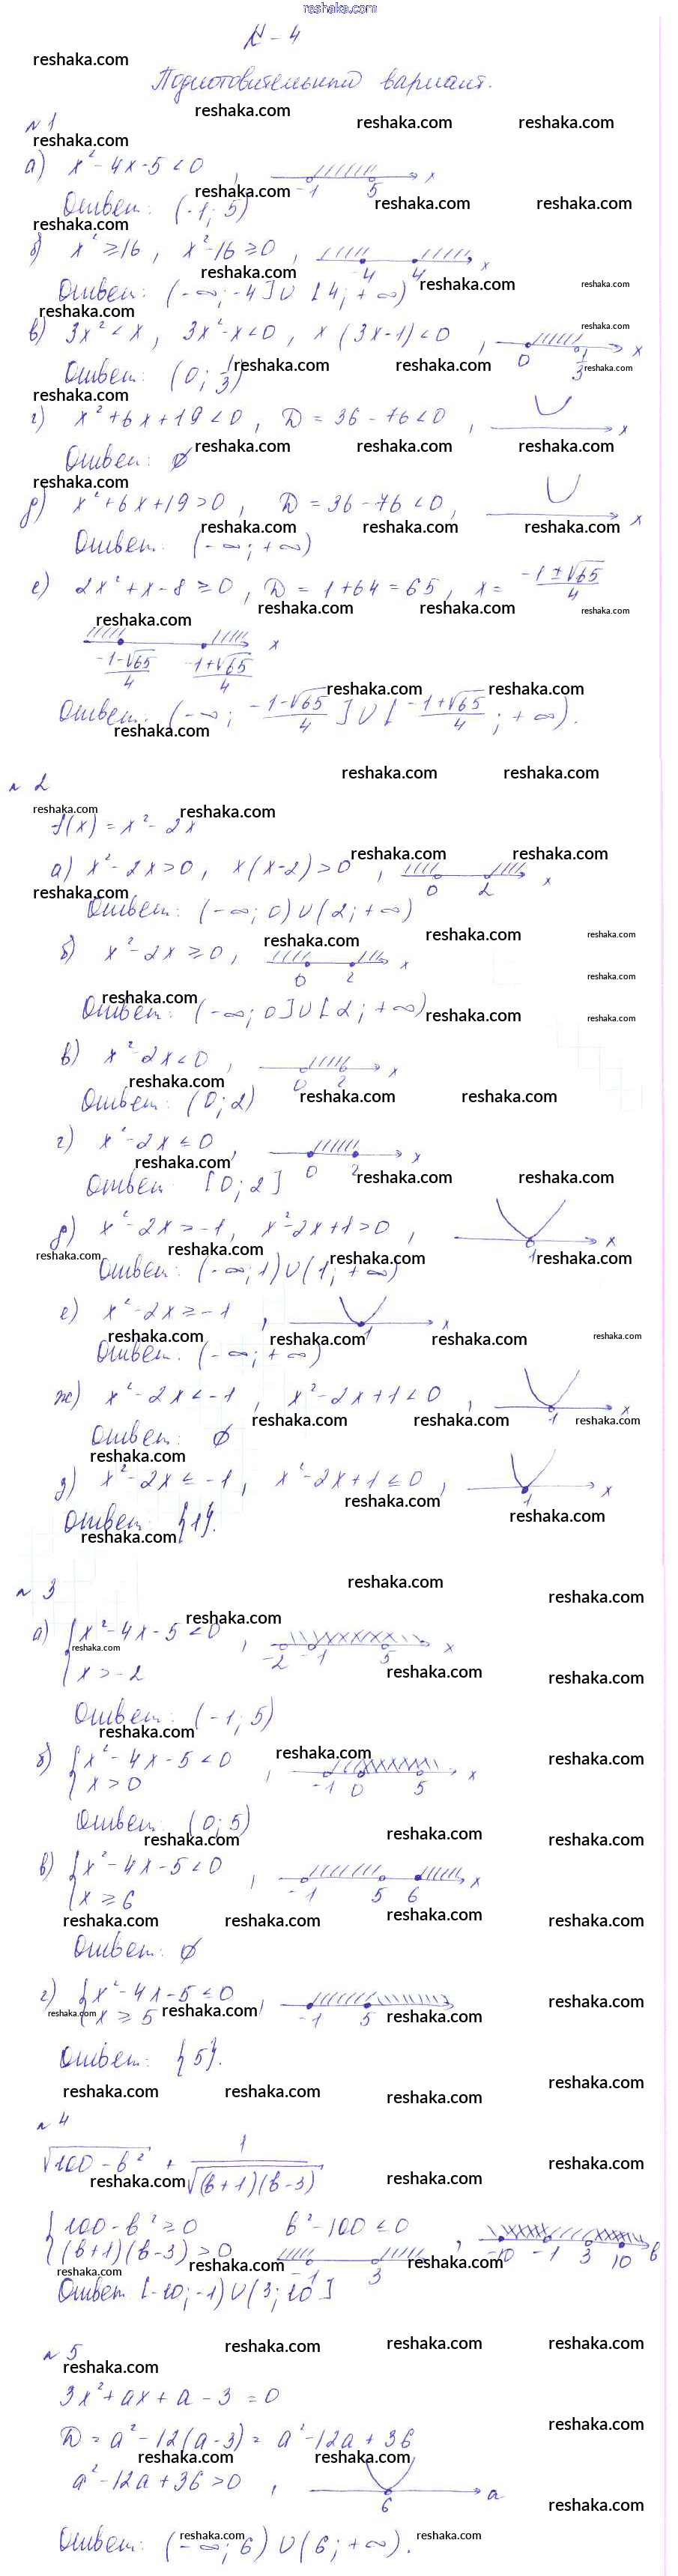 reshaka.com
К-4
Подготовительный вариант.
№1
а) x² - 4x - 5 < 0, -1 5 x
Ответ: (-1; 5)
б) x² ≥ 16, x² - 16 ≥ 0, -4 4 x
Ответ: (-∞; -4] ∪ [4; +∞)
в) 3x² < x, 3x² - x < 0, x(3x-1) < 0, 0 1/3 x
Ответ: (0; 1/3)
г) x² + 6x + 19 < 0, D = 36 - 76 < 0, x
Ответ: ∅
д) x² + 6x + 19 > 0, D = 36 - 76 < 0, x
Ответ: (-∞; +∞)
е) 2x² + x - 8 ≥ 0, D = 1 + 64 = 65, x = (-1±√65)/4
(-1-√65)/4 (-1+√65)/4 x
Ответ: (-∞; (-1-√65)/4] ∪ [(-1+√65)/4; +∞).
№2
f(x) = x² - 2x
а) x² - 2x > 0, x(x-2) > 0, 0 2 x
Ответ: (-∞; 0) ∪ (2; +∞)
б) x² - 2x ≥ 0, 0 2 x
Ответ: (-∞; 0] ∪ [2; +∞)
в) x² - 2x < 0, 0 2 x
Ответ: (0; 2)
г) x² - 2x ≤ 0, 0 2 x
Ответ: [0; 2]
д) x² - 2x > -1, x² - 2x + 1 > 0, 1 x
Ответ: (-∞; 1) ∪ (1; +∞)
е) x² - 2x ≥ -1, 1 x
Ответ: (-∞; +∞)
ж) x² - 2x < -1, x² - 2x + 1 < 0, 1 x
Ответ: ∅
з) x² - 2x ≤ -1, x² - 2x + 1 ≤ 0, 1 x
Ответ: {1}.
№3
а) { x² - 4x - 5 < 0, -2 -1 5 x
x > -2
Ответ: (-1; 5)
б) { x² - 4x - 5 < 0, -1 0 5 x
x > 0
Ответ: (0; 5)
в) { x² - 4x - 5 < 0, -1 5 6 x
x ≥ 6
Ответ: ∅
г) { x² - 4x - 5 ≤ 0, -1 5
x ≥ 5
Ответ: {5}.
№4
√(100 - b²) + 1/√((b+1)(b-3))
{ 100 - b² ≥ 0 b² - 100 ≤ 0, -10 -1 3 10 b
(b+1)(b-3) > 0 -1 3
Ответ [-10; -1) ∪ (3; 10]
№5
3x² + ax + a - 3 = 0
D = a² - 12(a-3) = a² - 12a + 36
a² - 12a + 36 > 0, 6 a
Ответ: (-∞; 6) ∪ (6; +∞).